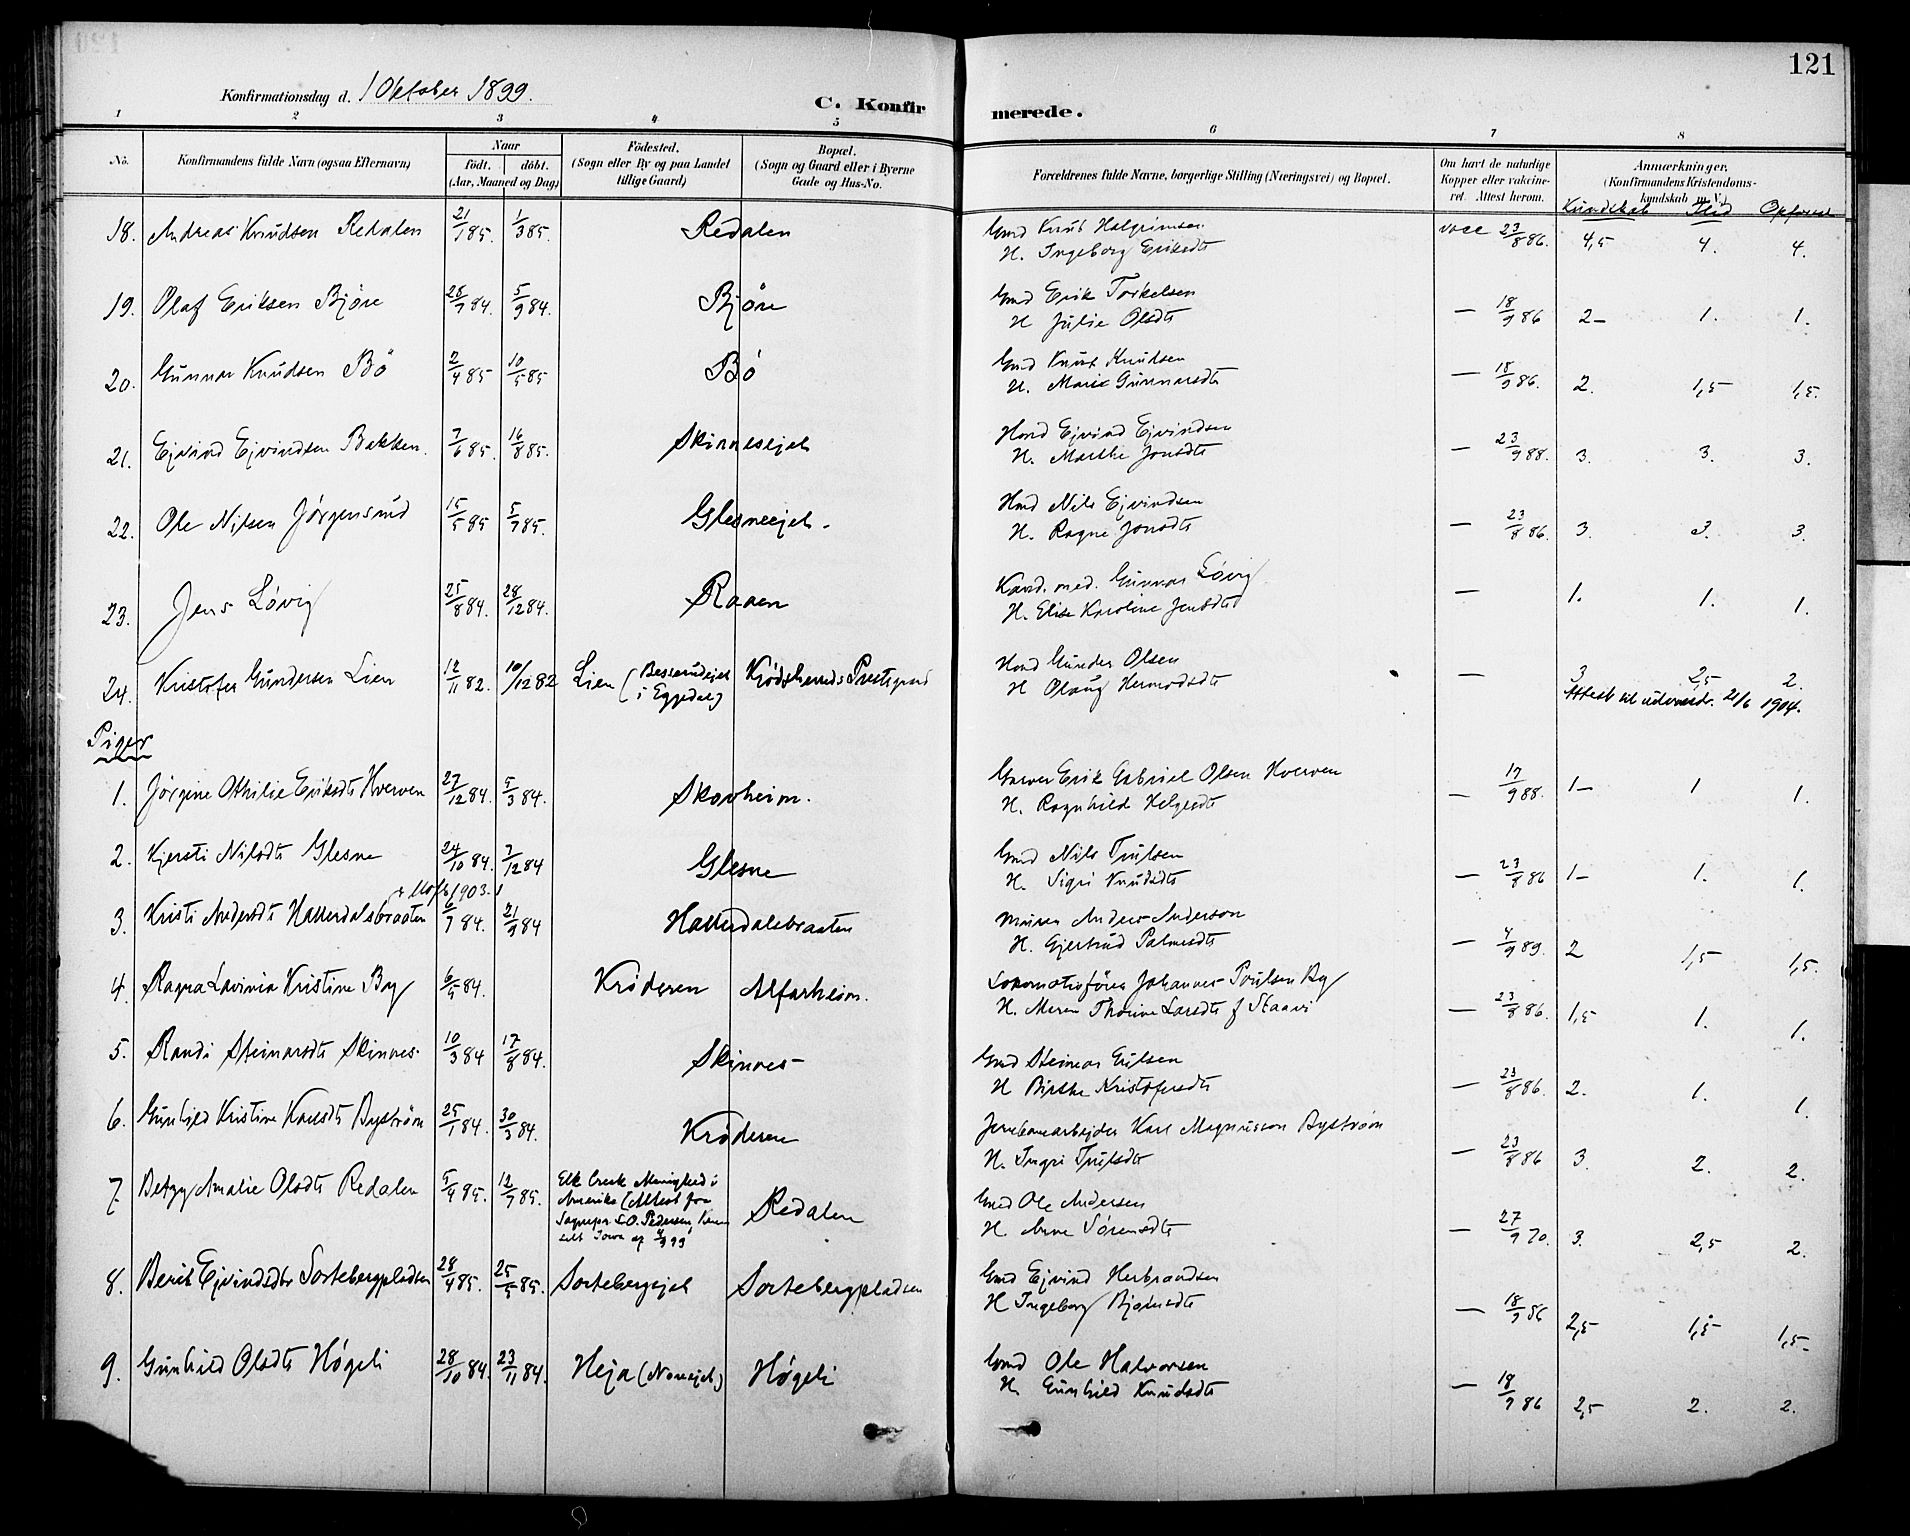 121
Konfirmationsdag d. 1 Oktober 1899.
C. Konfirmerede.
1 2 3 4 5 6 7 8
No. Konfirmandens fulde Navn (ogsaa Efternavn) Naar födt. döbt. (Aar, Maaned og Dag) Födested. (Sogn eller By og paa Landet tillige Gaard) Bopæl. (Sogn og Gaard eller i Byerne Gade og Hus-No. Forældrenes fulde Navne, borgerlige Stilling (Næringsvei) og Bopæl. Om havt de naturlige Kopper eller vakcineret. Attest herom. Anmærkninger. (Konfirmandens Kristendomskundskab m. V.)
Kundskab Flid Opførsel
18. Andreas Knudsen Redalen 21/1 85. 1/3 85. Redalen Gmd Knut Halgrimsen vacc 23/8 86. 4,5 4. 4.
H. Ingeborg Eriksdt
19. Olaf Eriksen Björe 28/7 84. 5/9 84. Björe Gmd Erik Torkelsen — 18/9 86 2- 1. 1.
H Julie Olsdt
20. Gunnar Knudsen Bö 2/4 85 10/5 85 Bö Gmd Knut Knudsen — 18/9 86. 2. 1,5 1,5.
H. Marie Gunnarsdt
21. Ejvind Ejvindsen Bakken. 7/6 85. 16/8 85. Skinneseje Hmd Ejvind Ejvindsen — 23/9 88. 3. 3. 3.
H. Marthe Jonsdt
22. Ole Nilsen Jörgensrud 15/5 85 5/7 85. Glesneeje. Hmd Nils Ejvindsen — 23/8 86. 3. 3. 3.
H. Ragne Jonsdt
23. Jens Lövig 25/8 84. 28/12 84. Raaen Kand. med. Gunnar Lövig — 1. 1. 1.
H. Elise Karoline Jensdt
24. Kristofer Gundersen Lien 12/11 82. 10/12 82 Lien (Besserudejet i Eggedal) Krödsherreds Prestegjeld Hmd Gunder Olsen — 3 2,5 2.
H Olaug Hermodsdt Attest til udvandr. 21/6 1904.
Piger
1. Jörgine Othilie Eriksdt Hverven 27/12 84. 5/3 84. Skovheim. Garver Erik Gabriel Olsen Hverven — 17/9 88. 1- 1 1.
H. Ragnhild Helgesdt
2. Kjersti Nilsdt Glesne 24/10 84. 7/12 84 Glesne Gmd Nils Trulsen — 23/8 86 1- 1. 1.
H. Sigri Knudsdt
3. Kristi Andersdt Hallerdalsbraaten 6/7 84. 21/9 84 Hallerdalsbraaten Murer Anders Anderson — 4/9 89. 2 1,5 1,5.
H. Gjertrud Palmesdt
4. Ragna Lavinia Kristine By 6/5 84. Kröderen Alfarheim. Lokomotivförer Johannes Poulsen By — 23/8 86. 1,5 1. 1.
H. Maren Thorine Larsdt f Staavi
5. Randi Steinarsdt Skinnes. 10/3 84 17/8 84. Skinnes Gmd Steinar Gulsen — 23/8 86. 2. 1. 1.
H Birthe Kristofersdt
6. Gunhild Kristine Karlsdt Byström 25/1 84. 30/3 84. Kröderen Jernbanearbejder Karl Magnusson Byström — 23/8 86 3. 2. 2.
H. Ingri Trulsdt
7. Betzy Amalie Olsdt Redalen 5/4 85. 12/7 85. Elk Creek Menighed i Amerika (Attest fra Sognepr. S.O. Pedersen, Iowa af 99) Redalen Gmd Ole Andersen — 27/9 70. 3. 2,5 2.
H. Anne Sörensdt
8. Berit Ejvindsdtr Sortebergpladsen 28/4 85. 25/5 85. Sortebergejet Sortebergpladsen Gmd Ejvind Herbrandsen — 18/9 86 2,5 1,5 1,5
H Ingeborg Bjönsdt
9. Gunhild Olsdt Högeli 28/10 84. 23/11 84. Heja (Noreejet) Högeli Gmd Ole Halvorsen — 18/9 86 2,5 2. 2.
H. Gunhild Knudsdt